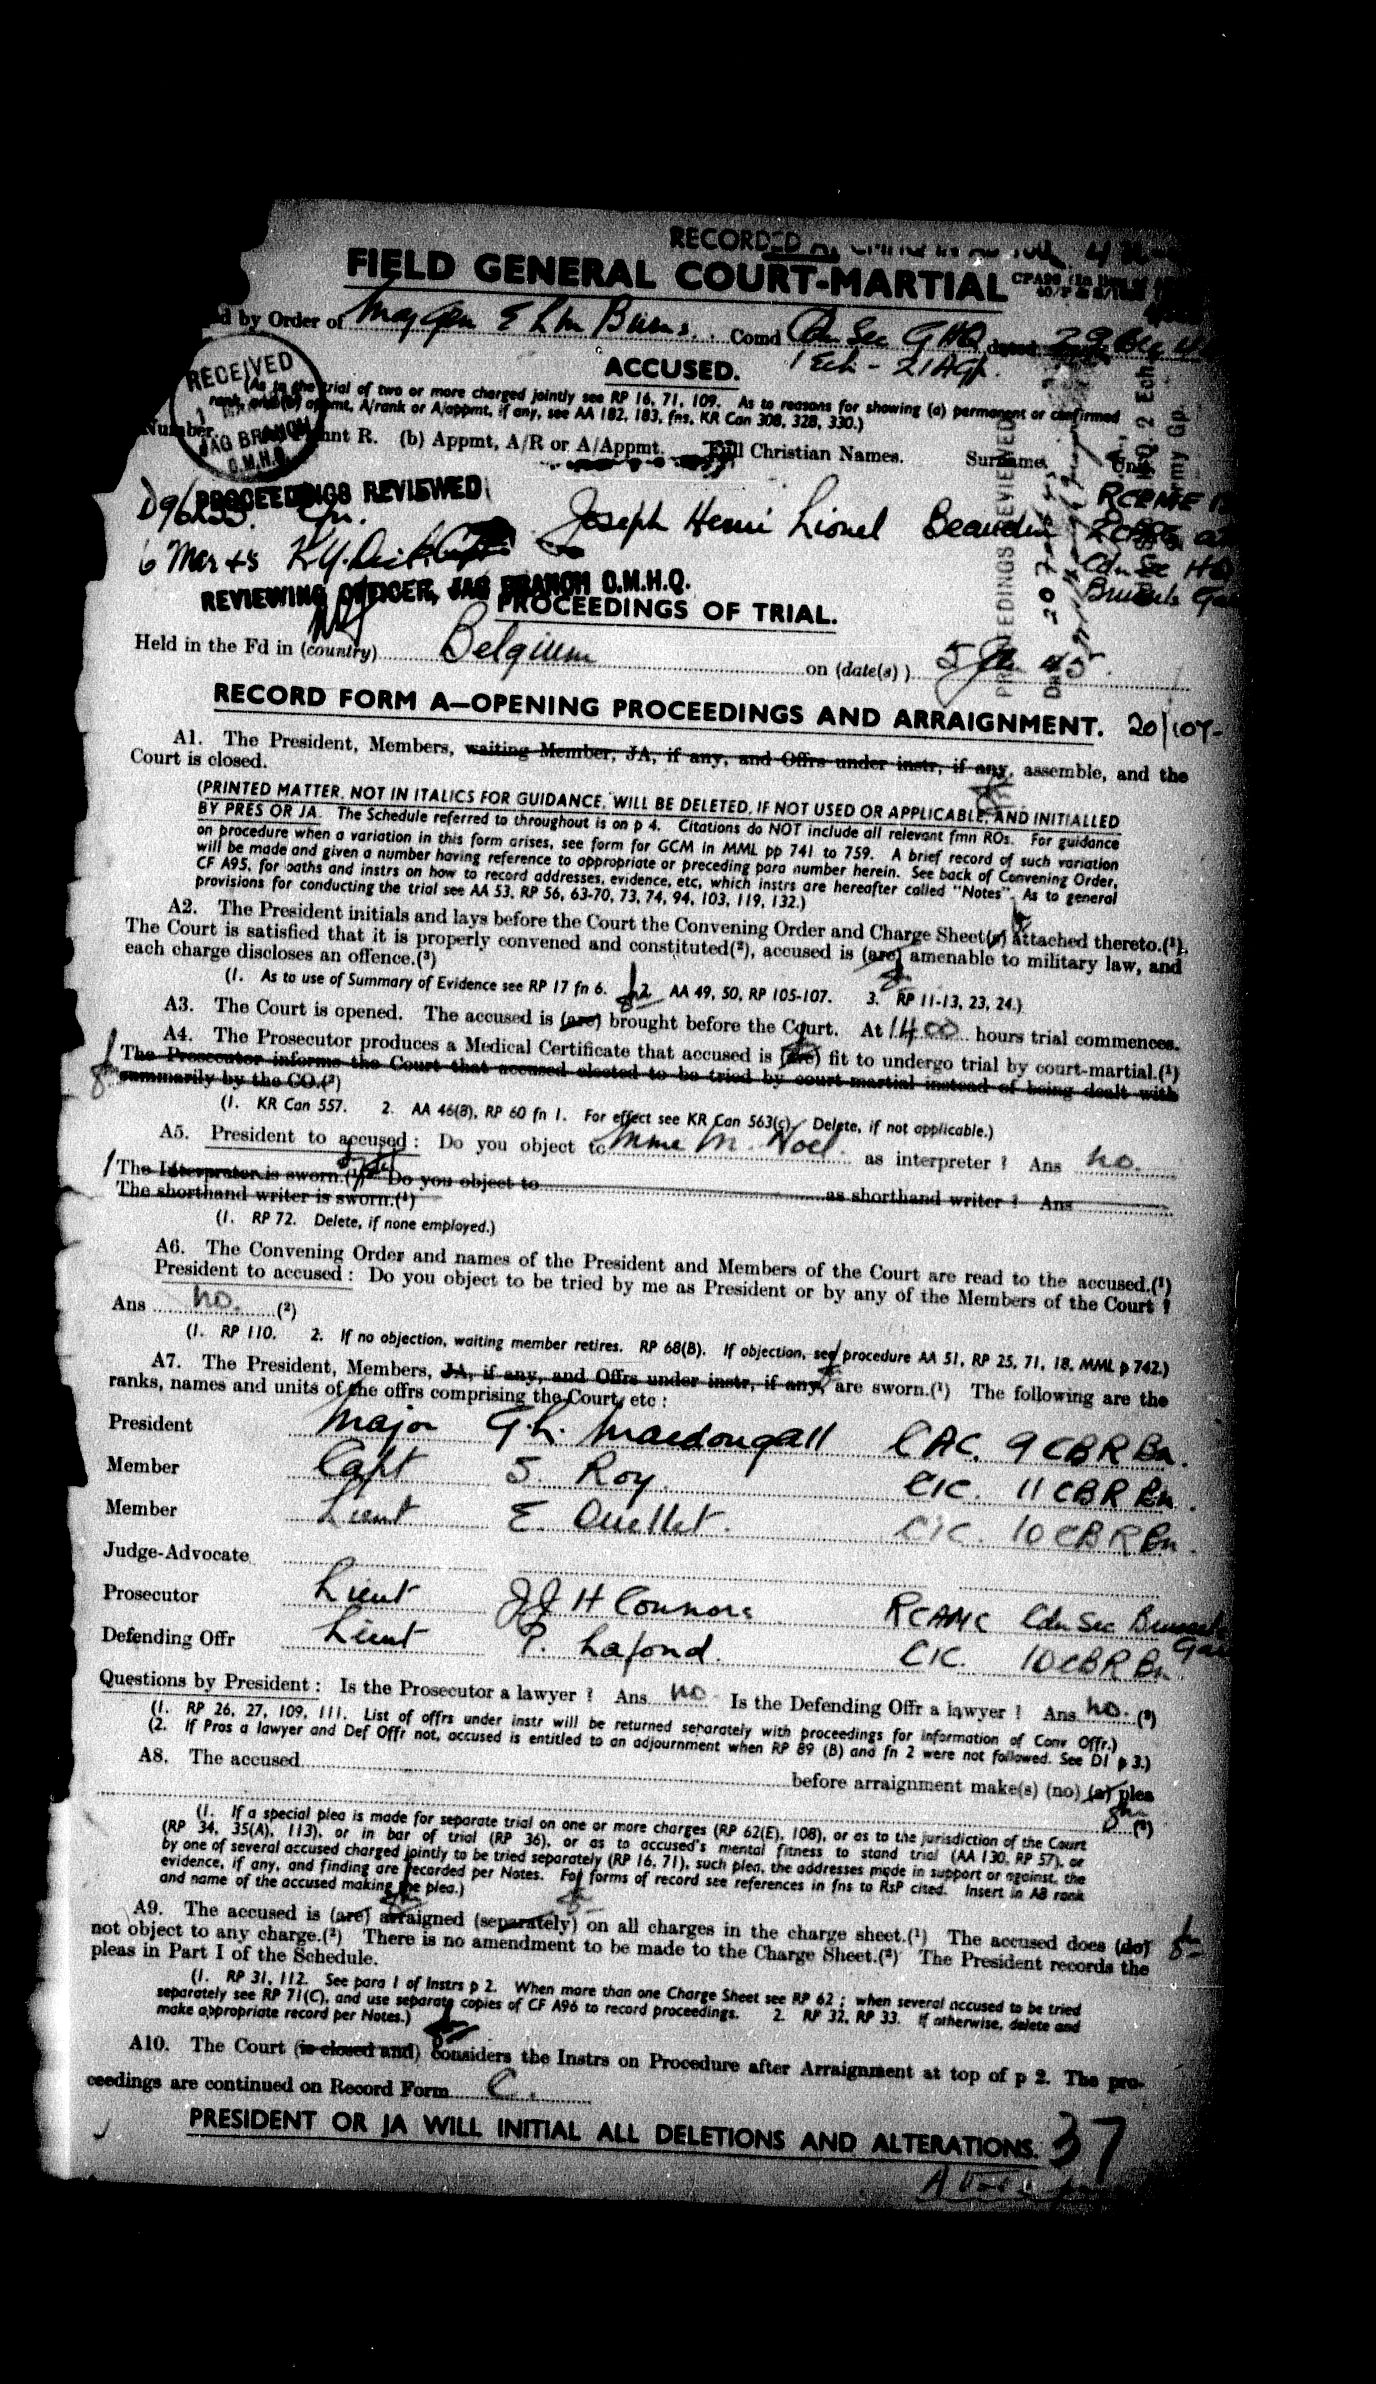 RECORDED
FIELD GENERAL COURT-MARTIAL
by Order of Maj Gen E L M Burns. Comd Cdn Sec GHQ dated 29 Dec
1 Ech - 21 AGp.
ACCUSED.
RECEIVED
JAG BRANCH
C.M.H.Q.
(As to the trial of two or more charged jointly see RP 16, 71, 109. As to reasons for showing (a) permanent or confirmed
rank and (b) appmt, A/rank or A/appmt, if any, see AA 182, 183, fns, KR Can 308, 328, 330.)
Number R. (b) Appmt, A/R or A/Appmt. Full Christian Names. Surname. Unit
PROCEEDINGS REVIEWED
Joseph Henri Lionel
Cdn Sec HQ
6 Mar 45
REVIEWING OFFICER, JAG BRANCH C.M.H.Q.
PROCEEDINGS REVIEWED
PROCEEDINGS OF TRIAL.
Held in the Fd in (country) Belgium on (date(s)) 5 Jan 45.
RECORD FORM A—OPENING PROCEEDINGS AND ARRAIGNMENT. 20/107-
A1. The President, Members, waiting Member, JA, if any, and Offrs under instr, if any, assemble, and the
Court is closed.
(PRINTED MATTER, NOT IN ITALICS FOR GUIDANCE, WILL BE DELETED, IF NOT USED OR APPLICABLE, AND INITIALLED
BY PRES OR JA. The Schedule referred to throughout is on p 4. Citations do NOT include all relevant fmn ROs. For guidance
on procedure when a variation in this form arises, see form for GCM in MML pp 741 to 759. A brief record of such variation
will be made and given a number having reference to appropriate or preceding para number herein. See back of Convening Order,
CF A95, for oaths and instrs on how to record addresses, evidence, etc, which instrs are hereafter called "Notes". As to general
provisions for conducting the trial see AA 53, RP 56, 63-70, 73, 74, 94, 103, 119, 132.)
A2. The President initials and lays before the Court the Convening Order and Charge Sheet(s) attached thereto.(¹)
The Court is satisfied that it is properly convened and constituted(²), accused is (are) amenable to military law, and
each charge discloses an offence.(³)
(1. As to use of Summary of Evidence see RP 17 fn 6. 2. AA 49, 50, RP 105-107. 3. RP 11-13, 23, 24.)
A3. The Court is opened. The accused is (are) brought before the Court. At 1400 hours trial commences.
A4. The Prosecutor produces a Medical Certificate that accused is (are) fit to undergo trial by court-martial.(¹)
The Prosecutor informs the Court that accused elected to be tried by court martial instead of being dealt with
summarily by the CO.(²)
(1. KR Can 557. 2. AA 46(8), RP 60 fn 1. For effect see KR Can 563(c). Delete, if not applicable.)
A5. President to accused: Do you object to Mme M. Noel. as interpreter? Ans no.
The Interpreter is sworn.(¹) Do you object to as shorthand writer? Ans
The shorthand writer is sworn.(¹)
(1. RP 72. Delete, if none employed.)
A6. The Convening Order and names of the President and Members of the Court are read to the accused.(¹)
President to accused: Do you object to be tried by me as President or by any of the Members of the Court?
Ans no. (²)
(1. RP 110. 2. If no objection, waiting member retires. RP 68(B). If objection, see procedure AA 51, RP 25, 71, 18. MML p 742.)
A7. The President, Members, JA, if any, and Offrs under instr, if any, are sworn.(¹) The following are the
ranks, names and units of the offrs comprising the Court, etc:
President Major G.L. Macdougall CAC. 9 CBR Bn.
Member Capt S. Roy. CIC. 11 CBR Bn.
Member Lieut E. Ouellet. CIC. 10 CBR Bn.
Judge-Advocate
Prosecutor Lieut JJH Connors RCAMC Cdn Sec
Defending Offr Lieut P. Lafond. CIC. 10 CBR Bn.
Questions by President: Is the Prosecutor a lawyer? Ans no Is the Defending Offr a lawyer? Ans no. (²)
(1. RP 26, 27, 109, 111. List of offrs under instr will be returned separately with proceedings for information of Conv Offr.)
(2. If Pros a lawyer and Def Offr not, accused is entitled to an adjournment when RP 89 (B) and fn 2 were not followed. See D1 p 3.)
A8. The accused
before arraignment make(s) (no) (a) plea
(¹)
(1. If a special plea is made for separate trial on one or more charges (RP 62(E), 108), or as to the jurisdiction of the Court
(RP 34, 35(A), 113), or in bar of trial (RP 36), or as to accused's mental fitness to stand trial (AA 130, RP 57), or
by one of several accused charged jointly to be tried separately (RP 16, 71), such plea, the addresses made in support or against, the
evidence, if any, and finding are recorded per Notes. For forms of record see references in fns to RsP cited. Insert in A8 rank
and name of the accused making the plea.)
A9. The accused is (are) arraigned (separately) on all charges in the charge sheet.(¹) The accused does (do)
not object to any charge.(²) There is no amendment to be made to the Charge Sheet.(²) The President records the
pleas in Part I of the Schedule.
(1. RP 31, 112. See para 1 of Instrs p 2. When more than one Charge Sheet see RP 62; when several accused to be tried
separately see RP 71(C), and use separate copies of CF A96 to record proceedings. 2. RP 32, RP 33. If otherwise, delete and
make appropriate record per Notes.)
A10. The Court (is closed and) considers the Instrs on Procedure after Arraignment at top of p 2. The pro-
ceedings are continued on Record Form C.
PRESIDENT OR JA WILL INITIAL ALL DELETIONS AND ALTERATIONS.
37